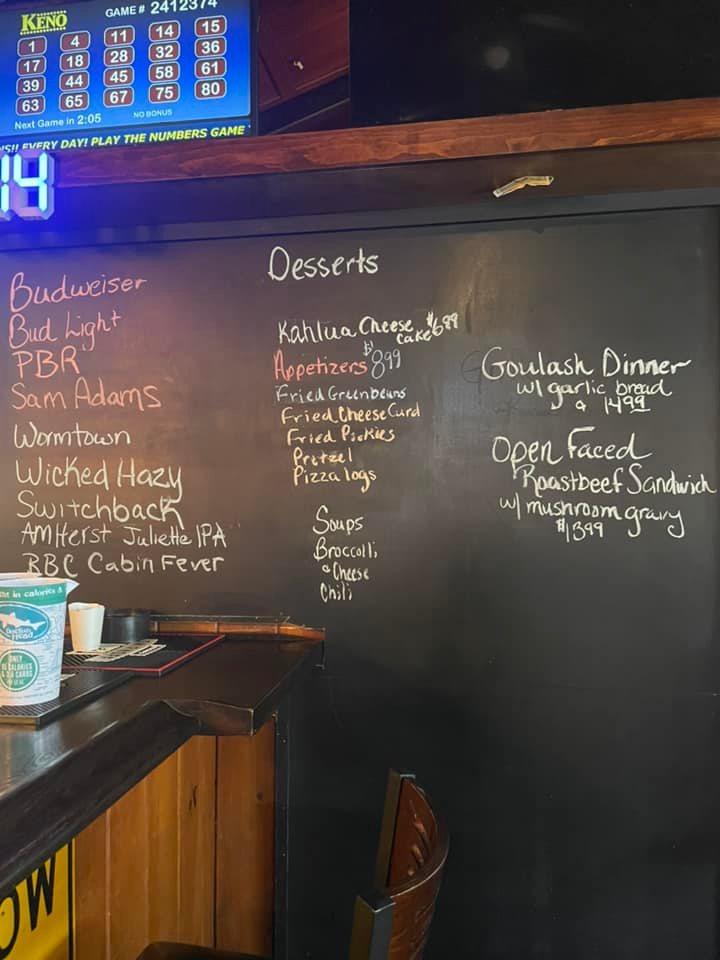 KENO
GAME # 2412374
1 4 11 14 15
17 18 28 32 36
39 44 45 58 61
63 65 67 75 80
Next Game in 2:05 NO BONUS
EVERY DAY! PLAY THE NUMBERS GAME
14
Budweiser
Bud Light
PBR
Sam Adams
Wormtown
Wicked Hazy
Switchback
AMHerst Juliette IPA
BBC Cabin Fever
Desserts
Kahlua Cheese $6.99
cake
Appetizers $8.99
Fried Greenbeans
Fried Cheese Curd
Fried Pickles
Pretzel
Pizza logs
Soups
Broccolli
& Cheese
Chili
Goulash Dinner
w/ garlic bread
14.99
Open Faced
Roastbeef Sandwich
w/ mushroom gravy
$13.99
in calories &
Dogfish
Head
ONLY
CALORIES
CARBS
OW